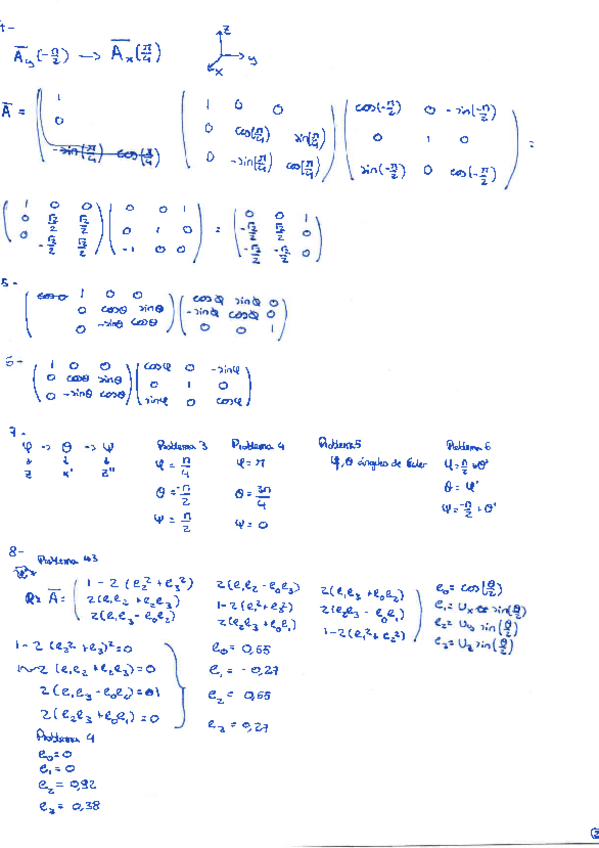 4-
A̅y(-π/2) → A̅x(π/4)
z
y
x
A̅ = ( 1 0 -sin(π/4) cos(π/4) ) ( 1 0 0 ; 0 cos(π/4) sin(π/4) ; 0 -sin(π/4) cos(π/4) ) ( cos(-π/2) 0 -sin(-π/2) ; 0 1 0 ; sin(-π/2) 0 cos(-π/2) ) =
( 1 0 0 ; 0 √2/2 √2/2 ; 0 -√2/2 √2/2 ) ( 0 0 1 ; 0 1 0 ; -1 0 0 ) = ( 0 0 1 ; -√2/2 √2/2 0 ; -√2/2 -√2/2 0 )
5-
( cosθ 1 0 0 ; 0 cosθ sinθ ; 0 -sinθ cosθ ) ( cosφ sinφ 0 ; -sinφ cosφ 0 ; 0 0 1 )
6-
( 1 0 0 ; 0 cosθ sinθ ; 0 -sinθ cosθ ) ( cosφ 0 -sinφ ; 0 1 0 ; sinφ 0 cosφ )
7-
φ → θ → ψ
z x' z''
Problema 3
φ = π/4
θ = -π/2
ψ = π/2
Problema 4
φ = π
θ = 3π/4
ψ = 0
Problema 5
φ, θ ángulos de Euler
Problema 6
φ = π/2 + θ'
θ = φ'
ψ = -π/2 + θ'
8-
Problema 3
A̅ = ( 1-2(e₂²+e₃²) 2(e₁e₂-e₀e₃) 2(e₁e₃+e₀e₂)
2(e₁e₂+e₂e₃) 1-2(e₁²+e₃²) 2(e₂e₃-e₀e₁)
2(e₁e₃-e₀e₂) 2(e₂e₃+e₀e₁) 1-2(e₁²+e₂²) )
e₀ = cos(θ/2)
e₁ = Ux sin(θ/2)
e₂ = Uy sin(θ/2)
e₃ = Uz sin(θ/2)
1-2(e₂²+e₃)²=0
2(e₁e₂+e₂e₃)=0
2(e₁e₃-e₀e₂)=1
2(e₂e₃+e₀e₁)=0
e₀ = 0,65
e₁ = -0,27
e₂ = 0,65
e₃ = 0,27
Problema 4
e₀=0
e₁=0
e₂ = 0,92
e₃ = 0,38